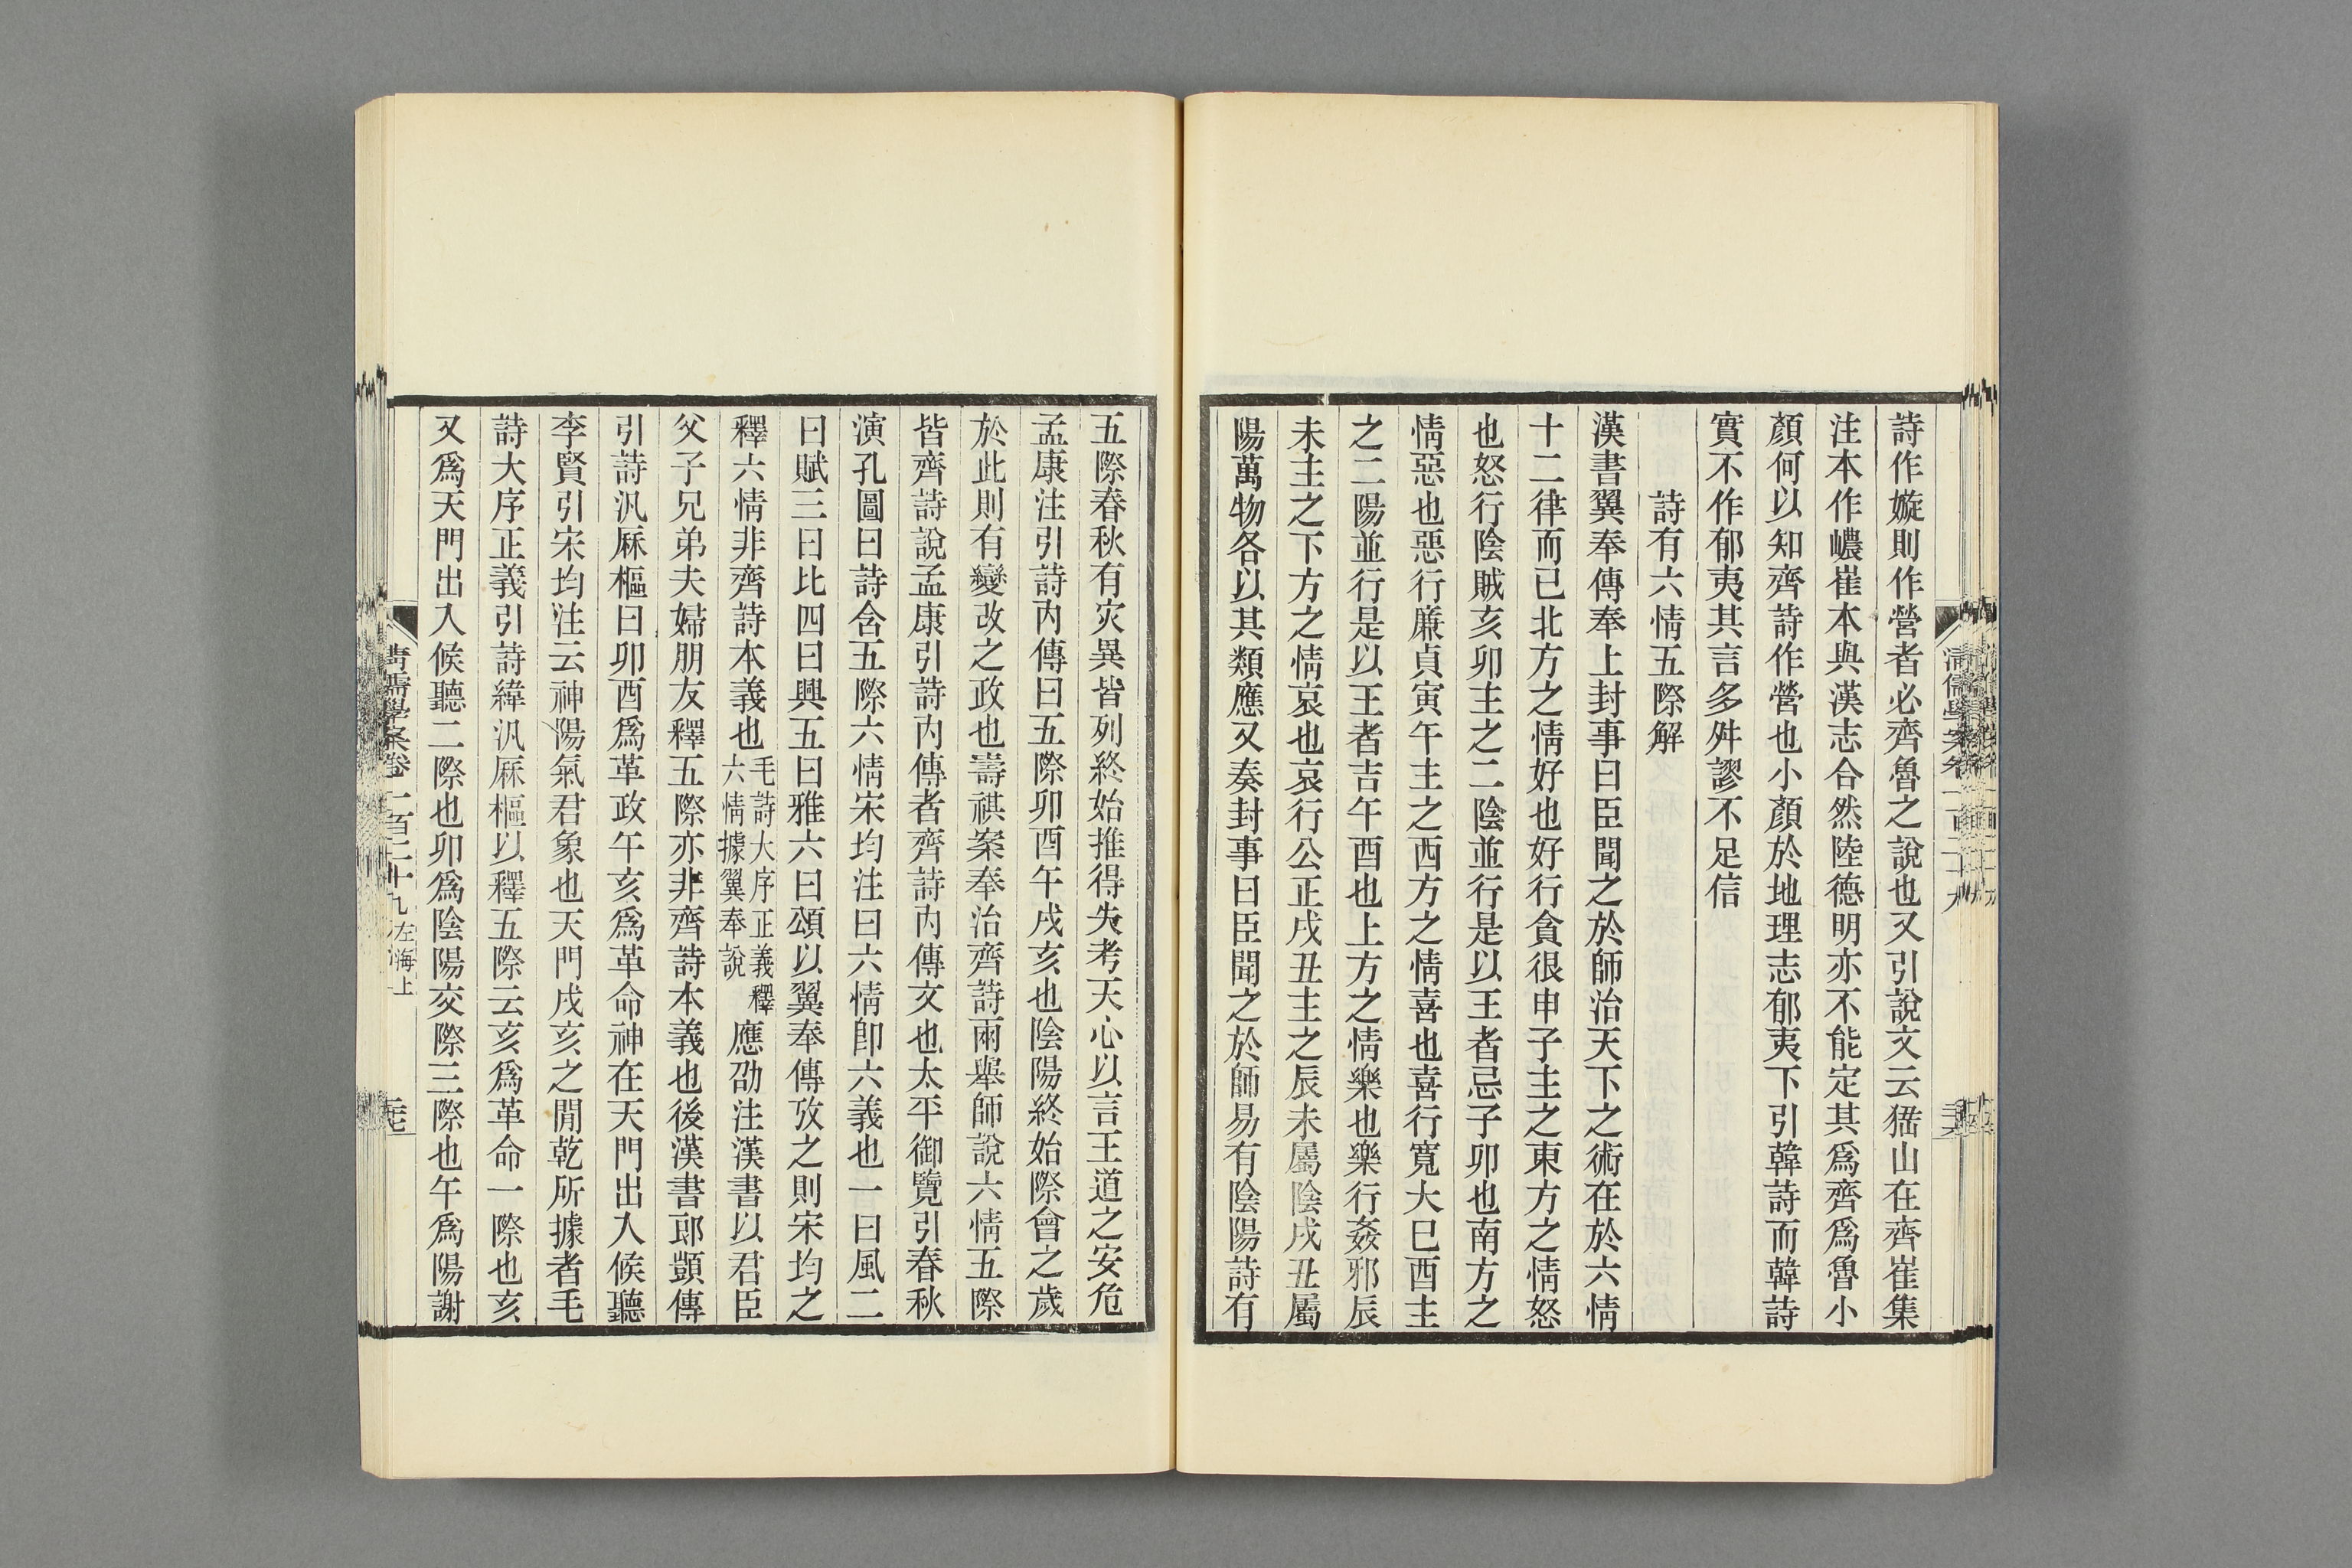 詩作嫙則作營者必齊魯之說也又引說文云猺山在齊崔集
注本作巙崔本與漢志合然陸德明亦不能定其爲齊爲魯小
顏何以知齊詩作營也小顏於地理志郁夷下引韓詩而韓詩
實不作郁夷其言多舛謬不足信
詩有六情五際解
漢書翼奉傳奉上封事曰臣聞之於師治天下之術在於六情
十二律而已北方之情好也好行貪很申子主之東方之情怒
也怒行陰賊亥卯主之二陰並行是以王者忌子卯也南方之
情惡也惡行廉貞寅午主之西方之情喜也喜行寬大巳酉主
之二陽並行是以王者吉午酉也上方之情樂也樂行姦邪辰
未主之下方之情哀也哀行公正戌丑主之辰未屬陰戌丑屬
陽萬物各以其類應又奏封事曰臣聞之於師易有陰陽詩有
五際春秋有灾異皆列終始推得失考天心以言王道之安危
孟康注引詩內傳曰五際卯酉午戌亥也陰陽終始際會之歲
於此則有變改之政也壽祺案奉治齊詩兩舉師說六情五際
皆齊詩說孟康引詩內傳者齊詩內傳文也太平御覽引春秋
演孔圖曰詩含五際六情宋均注曰六情即六義也一曰風二
曰賦三曰比四曰興五曰雅六曰頌以翼奉傳攷之則宋均之
釋六情非齊詩本義也毛詩大序正義釋六情據翼奉說應劭注漢書以君臣
父子兄弟夫婦朋友釋五際亦非齊詩本義也後漢書郎顗傳
引詩汎厤樞曰卯酉爲革政午亥爲革命神在天門出入候聽
李賢引宋均注云神陽氣君象也天門戌亥之閒乾所據者毛
詩大序正義引詩緯汎厤樞以釋五際云亥爲革命一際也亥
又爲天門出入候聽二際也卯爲陰陽交際三際也午爲陽謝
清儒學案卷一百二十九 左海上 三七